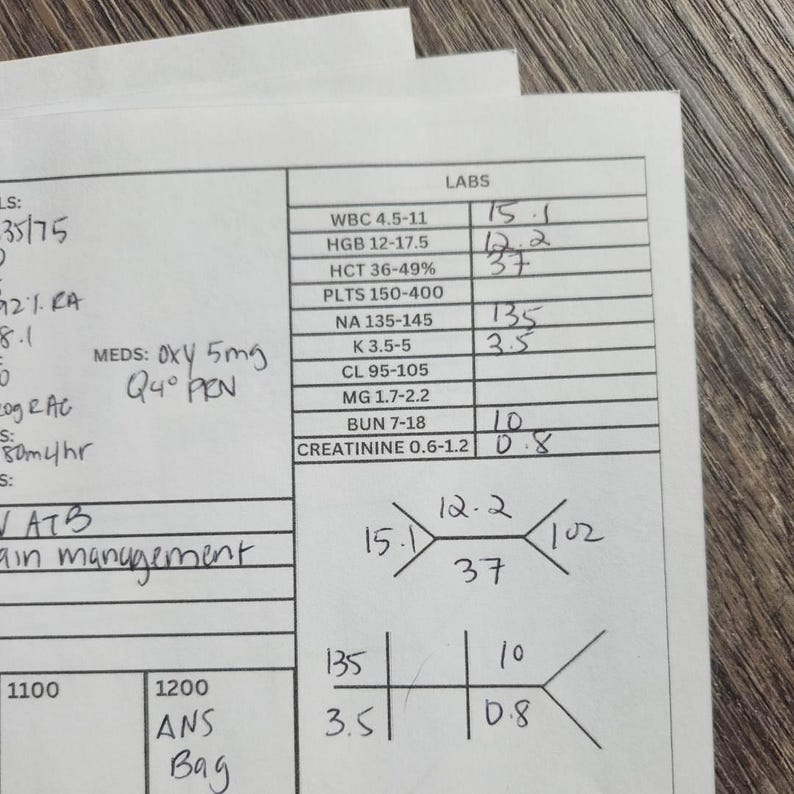 LS:
35/75
92% RA
8.1
MEDS: oxy 5mg
Q4° PRN
20g RAC
S:
80mL/hr
S:
ATB
ain management
1100
1200
ANS
Bag
LABS
WBC 4.5-11 15.1
HGB 12-17.5 12.2
HCT 36-49% 37
PLTS 150-400
NA 135-145 135
K 3.5-5 3.5
CL 95-105
MG 1.7-2.2
BUN 7-18 10
CREATININE 0.6-1.2 0.8
12.2
15.1 102
37
135 10
3.5 0.8